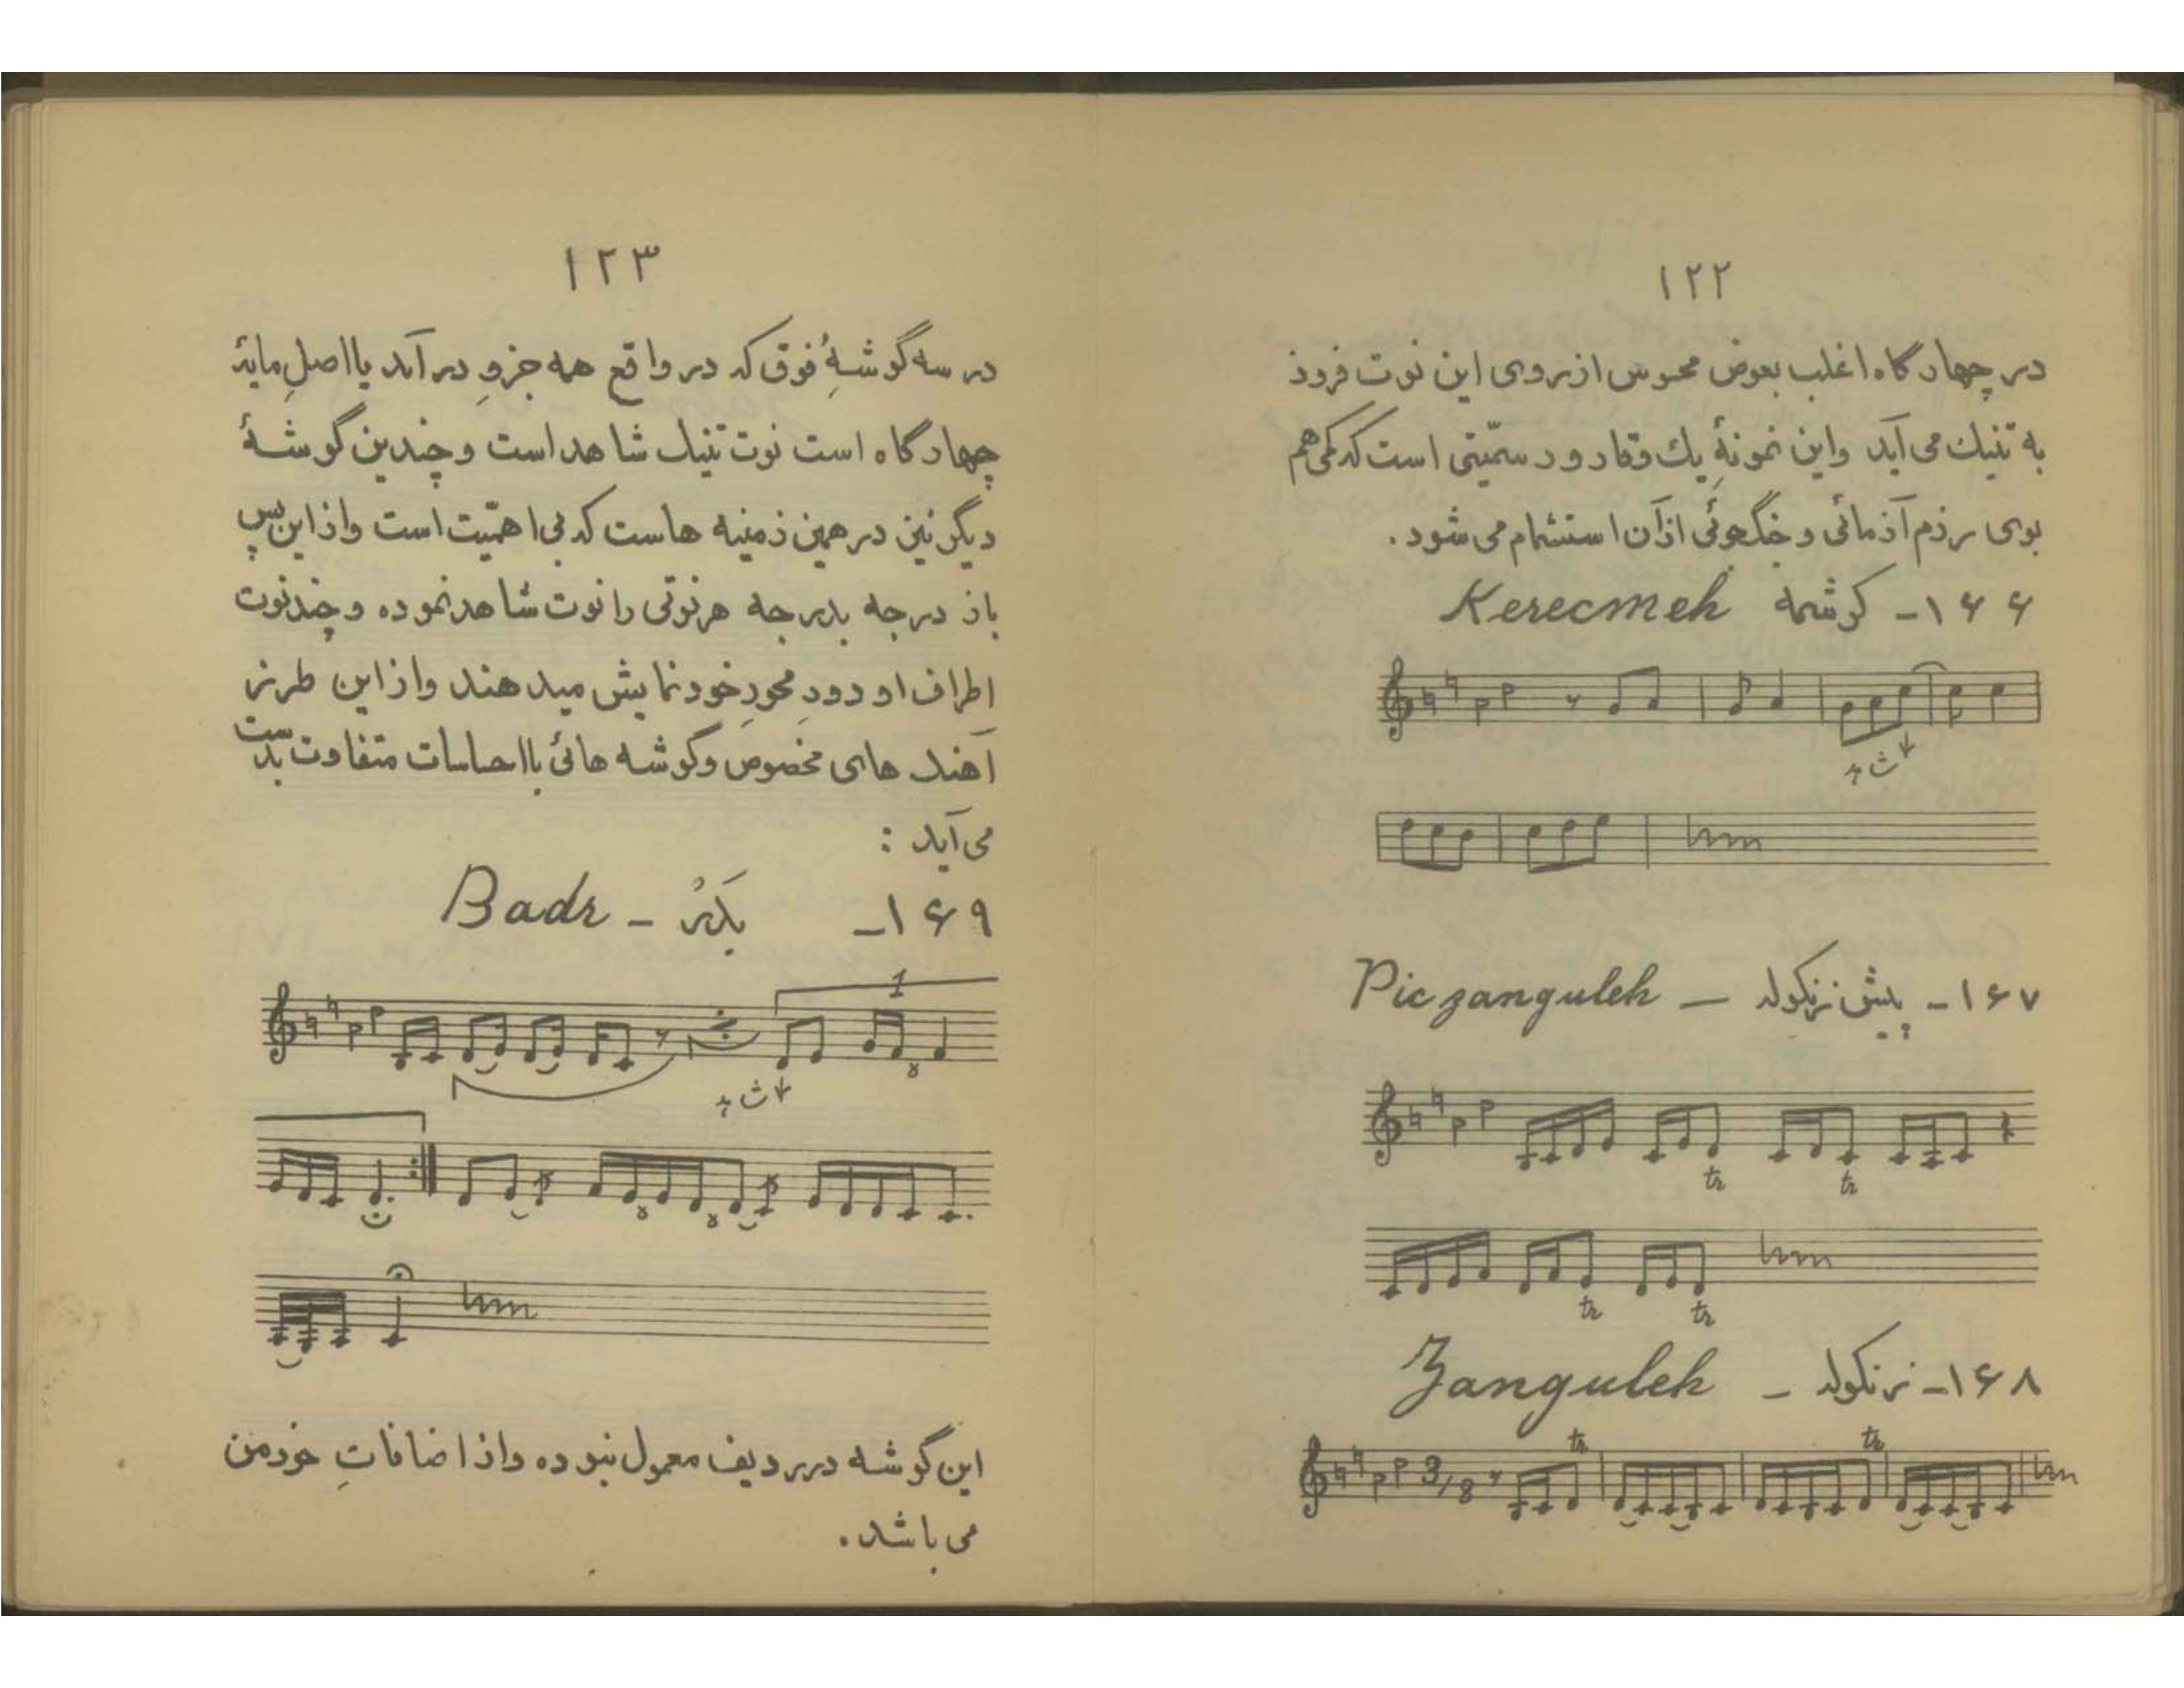 ۱۲۲
در چهارگاه اغلب بعوض محسوس از روی این نوت فرود
به تنیك می آید و این نمونهٔ یك وقار و رسمّیتی است که کمی هم
بوی رزم آزمائی و جنگجوئی از آن استشمام می شود.
۱۶۶- کرشمه Kerecmeh
۱۶۷- پیش زنگوله — Piczanguleh
tr tr
tr tr
۱۶۸- زنگوله - Zanguleh
3/8 tr tr
۱۲۳
در سه گوشهٔ فوق که در واقع همه جزوِ درآمد یا اصلِ مایهٔ
چهارگاه است نوت تنیك شاهد است و چندین گوشهٔ
دیگر نیز در همین زمینه هاست که بی اهمّیت است و از این پس
باز درجه بدرجه هر نوتی را نوت شاهد نموده و چند نوت
اطراف او دورِ محورِ خود نمایش میدهند و از این طرز
آهنگ های مخصوص و گوشه هائی با احساسات متفاوت بدست
می آید :
۱۶۹- بَدرْ - Badr
1
این گوشه در ردیف معمول نبوده و از اضافاتِ خود من
می باشد.